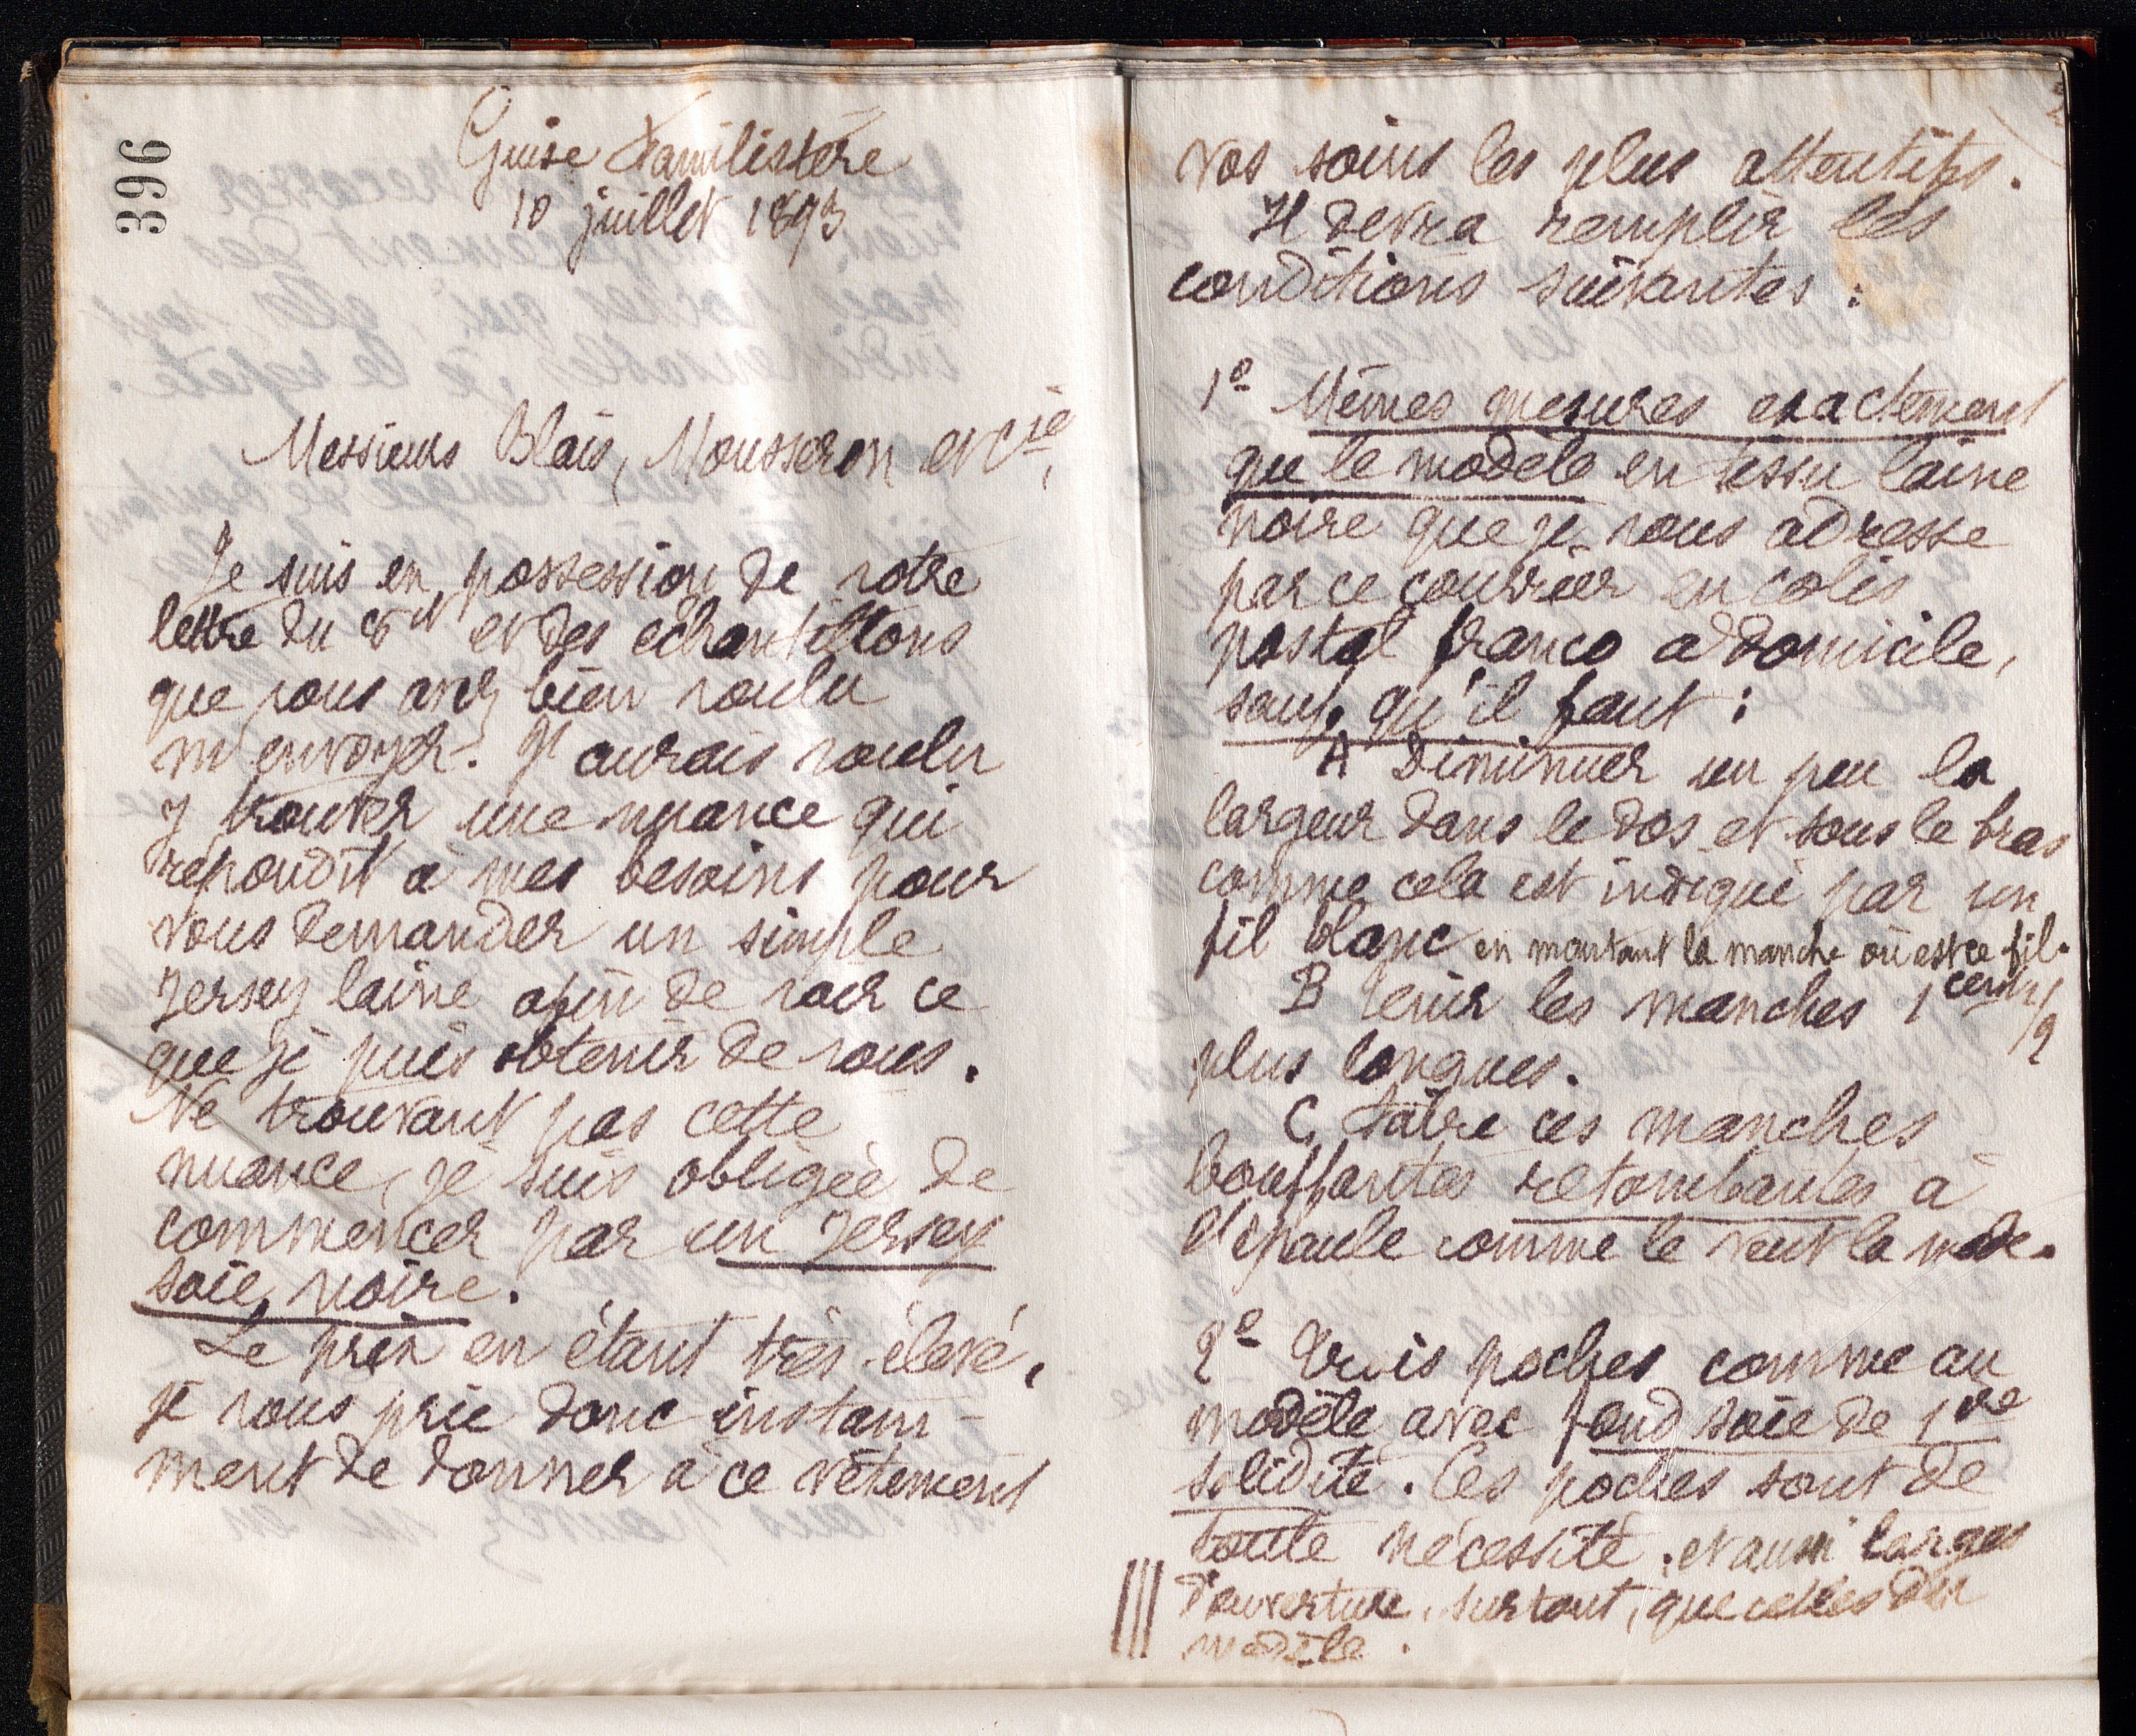 396
Guise Familistère
10 juillet 1893
Messieurs Blais, Mousseron et Cie,
Je suis en possession de votre
lettre du 8 ct et des échantillons
que vous avez bien voulu
m'envoyer. J'aurais voulu
y trouver une nuance qui
répondit à mes besoins pour
vous demander un simple
Jersey laine afin de voir ce
que je puis obtenir de vous.
Ne trouvant pas cette
nuance, je suis obligée de
commencer par un Jersey
soie noire.
Le prix en étant très élevé,
je vous prie donc instam-
ment de donner à ce vêtement
vos soins les plus attentifs.
Il devra remplir les
conditions suivantes :
1º Mêmes mesures exactement
que le modèle en tissu laine
noire que je vous adresse
par ce courrier en colis
postal franco à domicile,
sauf qu'il faut :
A Diminuer un peu la
largeur dans le dos et sous le bras
comme cela est indiqué par un
fil blanc en montant la manche où est ce fil.
B Tenir les manches 1 cent 1/2
plus longues.
C, Faire ces manches
bouffantes retombantes à
l'épaule comme le veut la mode.
2º Trois poches comme au
modèle avec fond soie de 1re
solidité. Ces poches sont de
toute nécessité, et aussi larges
d'ouverture, surtout, que celles du
modèle.